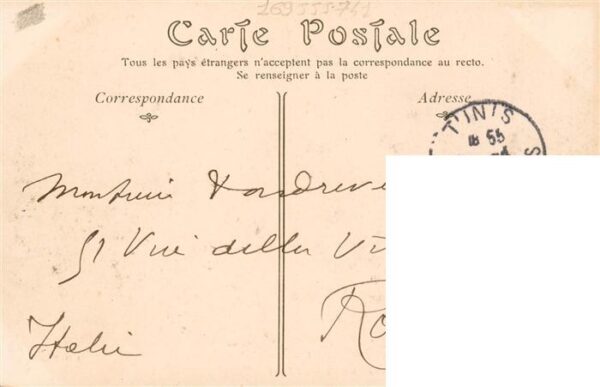 169555-741
Carte Postale
Tous les pays étrangers n'acceptent pas la correspondance au recto.
Se renseigner à la poste
Correspondance
Adresse
TUNIS
18 55
Monsieur
51 Via della Vi
Ro
Italie